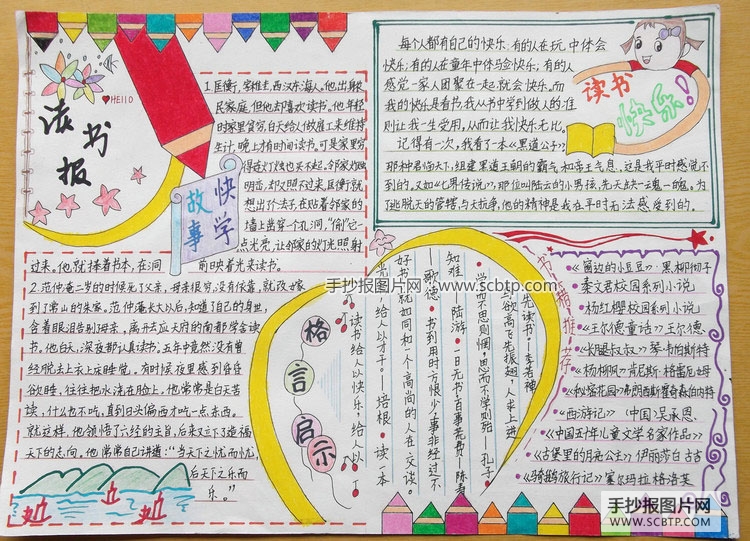 HEllO
读书报
快学
故事
1.匡衡，字稚圭，西汉东海人。他出身农
民家庭，但他却喜欢读书。他年轻
时家里贫穷，白天给人做雇工来维持
生计，晚上才有时间读书，可是家里穷
得连灯烛也买不起。邻家灯烛
明亮，却又照不过来，匡衡就
想出个法子，在贴着邻家的
墙上凿穿一个孔洞，“偷”它一
点光亮，让邻家的灯光照射
过来。他就捧着书本，在洞
前映着光来读书。
2.范仲淹二岁的时候死了父亲，母亲很穷，没有依靠，就改嫁
到了常山的朱家。范仲淹长大以后，知道了自己的身世，
含着眼泪告别母亲，离开去应天府的南都学舍读
书。他白天、深夜都认真读书。五年中竟然没有曾
经脱去上衣上床睡觉。有时候夜里感到昏昏
欲睡，往往把水浇在脸上，他常常是白天苦
读，什么也不吃，直到日头偏西才吃一点东西。
就这样，他领悟了六经的主旨，后来又立下了造福
天下的志向。他常常自己讲道：“当天下之忧而忧，
后天下之乐而
乐。”
每个人都有自己的快乐：有的人在玩中体会
快乐；有的人在童年中体会快乐；有的人
感觉一家人团聚在一起就会快乐。而
我的快乐是看书，我从书中学到做人的准
则，让我一生受用，从而让我快乐无比。
记得有一次，我看了一本《黑道公子》，
那种君临天下，组建黑道王朝的霸气和帝王气息，这是我平时感觉不
到的。又如《七界传说》，那位叫陆云的小男孩，先天缺一魂一魄，为
了逃脱天的管辖与天抗争，他的精神是我在平时无法感受到的。
读书
快乐！
格言启示
鸟欲高飞先振翅，人求上进
先读书。—李若禅
学而不思则惘，思而不学则殆—孔子
知难—陆游·一日无书，百事荒费—陈寿
—歌德·书到用时方恨少，事非经过不
好书，就如同和一个高尚的人在交谈。
光，给人以才干。—培根·读一本
读书给人以快乐，给人以
书籍推荐
《窗边的小豆豆》·黑柳彻子
秦文君校园系列小说
杨红樱校园系列小说
《王尔德童话》王尔德
《长腿叔叔》琴·韦伯斯特
《杨柳风》肯尼斯·格雷厄姆
《秘密花园》弗朗西斯霍奇森伯内特
《西游记》（中国）吴承恩
《中国五十年儿童文学名家作品》
《古堡里的月亮公主》伊丽莎白·古吉
《骑鹅旅行记》塞尔玛·拉格洛芙
手抄报图片网 - www.scbtp.com
手抄报图片网
WWW.SCBTP.COM